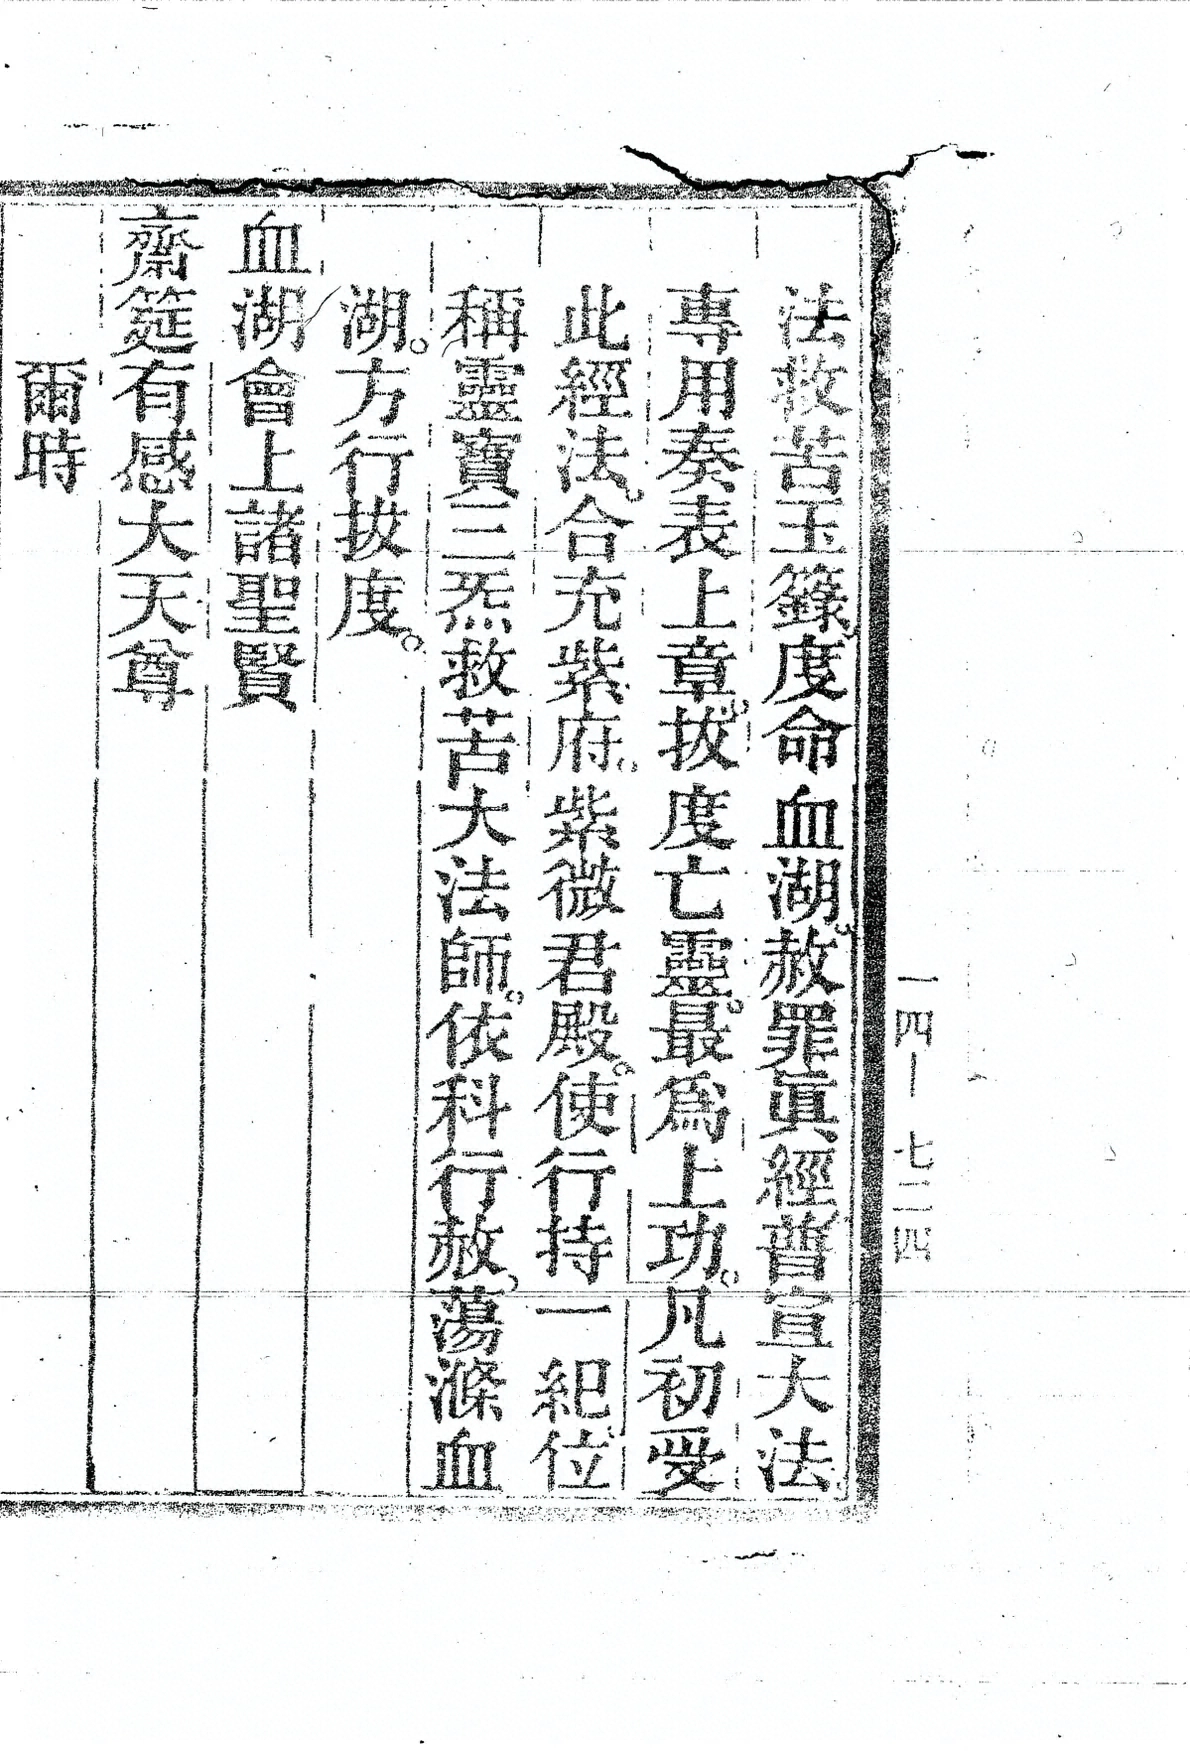 一四—七二四
法救苦玉籙度命血湖赦罪眞經普宣大法
專用奏表上章拔度亡靈最爲上功凡初受
此經法合充紫府紫微君殿使行持一紀位
稱靈寶三炁救苦大法師依科行赦蕩滌血
湖方行拔度
血湖會上諸聖賢
齋筵有感大天尊
爾時